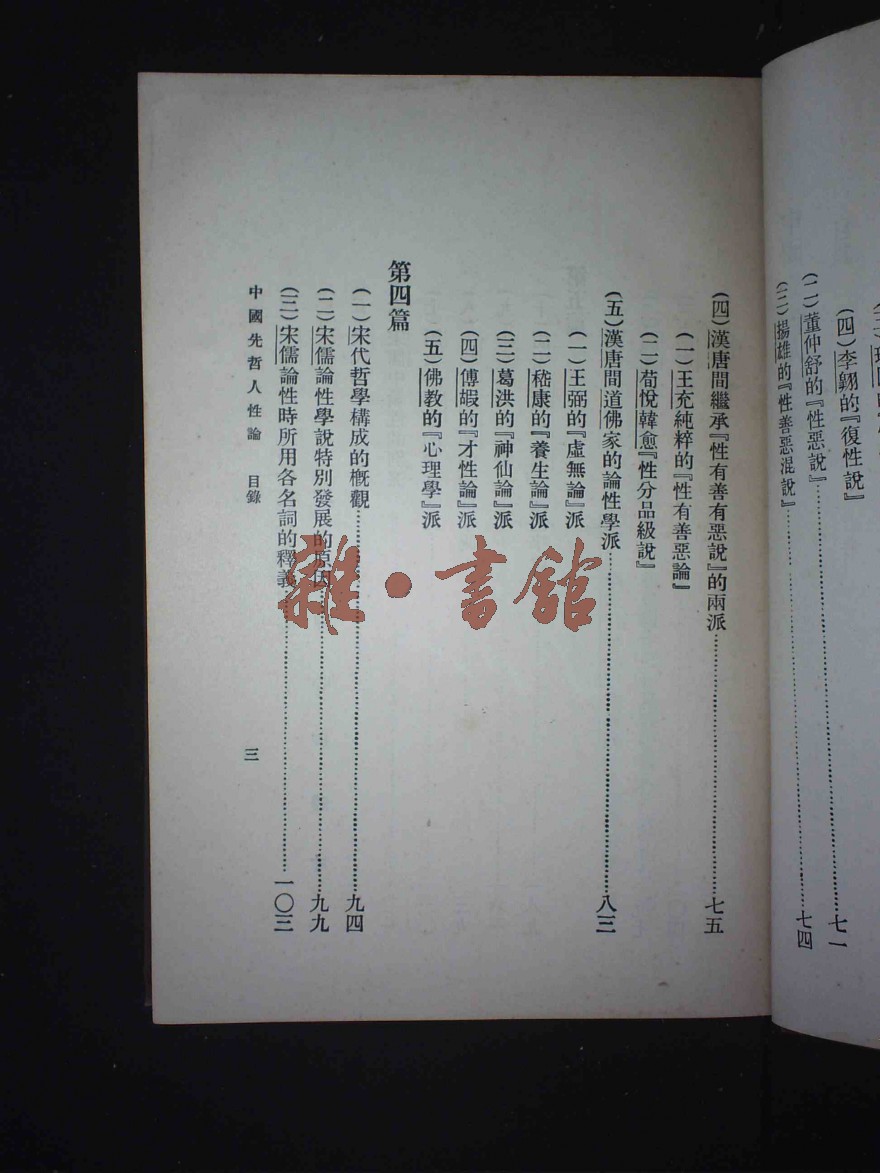 （四）李翶的『復性說』……七一
（二）董仲舒的『性惡說』
（三）揚雄的『性善惡混說』……七四
（四）漢唐間繼承『性有善有惡說』的兩派……七五
（一）王充純粹的『性有善惡論』
（二）荀悅韓愈『性分品級說』
（五）漢唐間道佛家的論性學派……八三
（一）王弼的『虛無論』派
（二）嵇康的『養生論』派
（三）葛洪的『神仙論』派
（四）傅嘏的『才性論』派
（五）佛教的『心理學』派
第四篇
（一）宋代哲學構成的槪觀……九四
（二）宋儒論性學說特別發展的原因……九九
（三）宋儒論性時所用各名詞的釋義……一〇三
中國先哲人性論 目錄 三
雜·書館